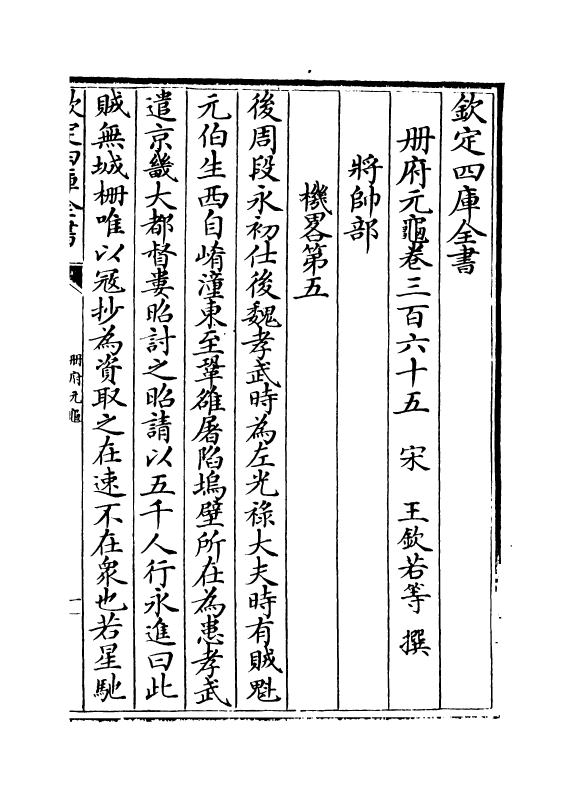 欽定四庫全書
冊府元龜卷三百六十五　宋　王欽若等　撰
將帥部
機畧第五
後周段永初仕後魏孝武時為左光祿大夫時有賊魁
元伯生西自崤潼東至鞏雒屠陷塢壁所在為患孝武
遣京畿大都督婁昭討之昭請以五千人行永進曰此
賊無城栅唯以寇抄為資取之在速不在衆也若星馳
欽定四庫全書
冊府元龜
一